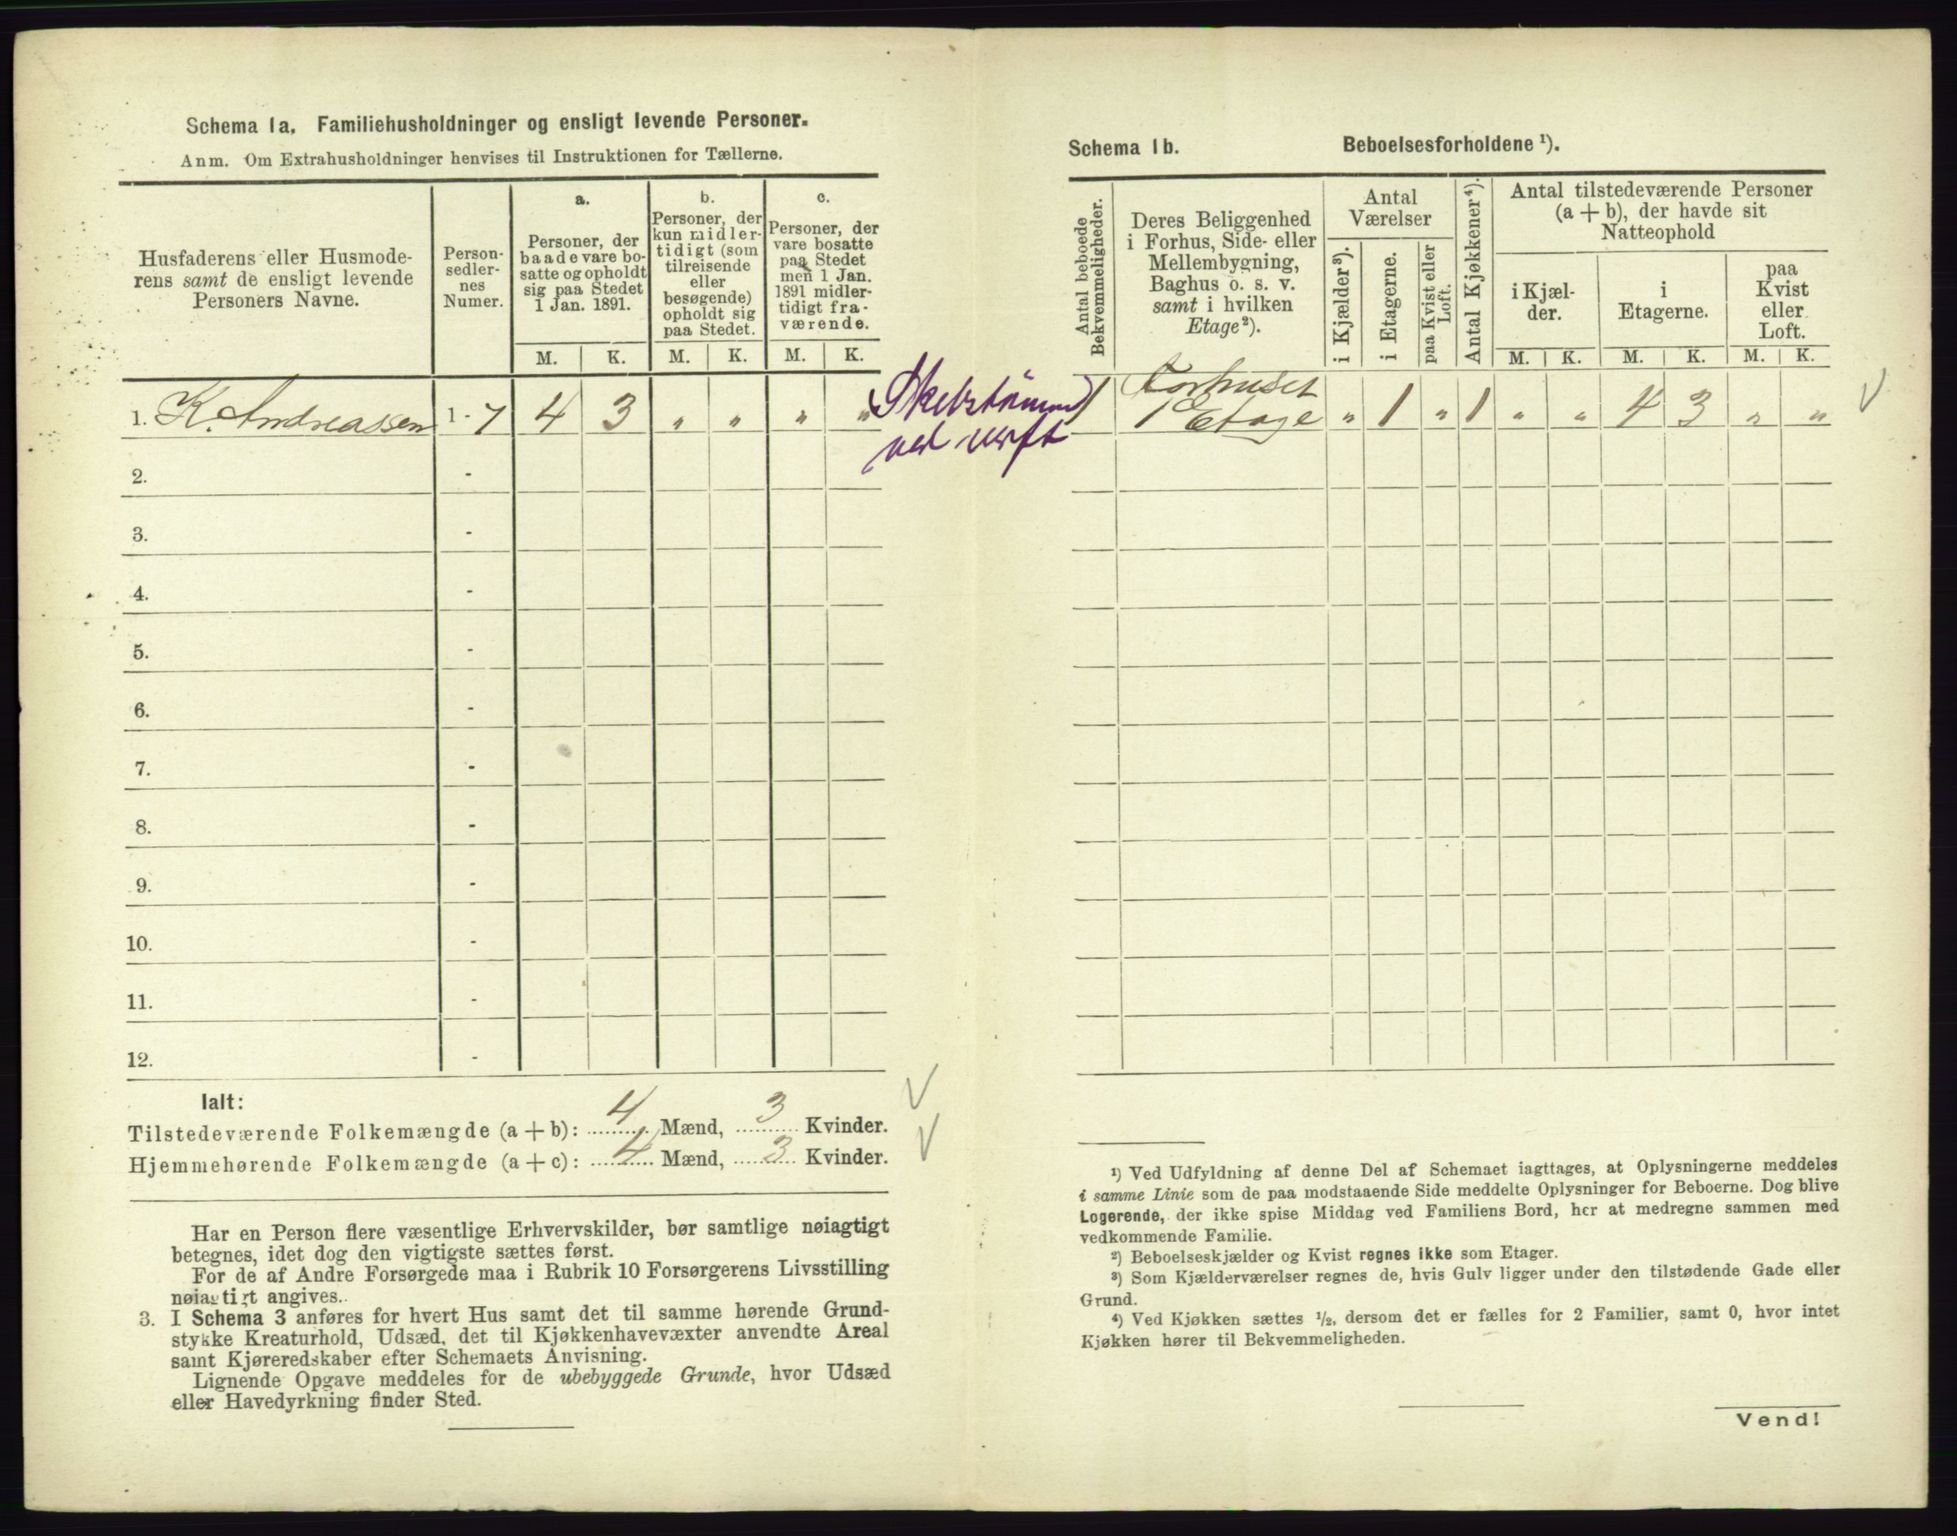 Schema 1a. Familiehusholdninger og ensligt levende Personer.
Anm. Om Extrahusholdninger henvises til Instruktionen for Tællerne.
Husfaderens eller Husmode-
rens samt de ensligt levende
Personers Navne.
Person-
sedler-
nes
Numer.
a.
Personer, der
baade vare bo-
satte og opholdt
sig paa Stedet
1 Jan. 1891.
b.
Personer, der
kun midler-
tidigt (som
tilreisende
eller
besøgende)
opholdt sig
paa Stedet.
c.
Personer, der
vare bosatte
paa Stedet
men 1 Jan.
1891 midler-
tidigt fra-
værende.
M. K. M. K. M. K.
1. K. Andreassen 1 - 7 4 3 " " " "
Skibstømmermd
ved verft
2. -
3. -
4. -
5. -
6. -
7. -
8. -
9. -
10. -
11. -
12. -
Ialt:
Tilstedeværende Folkemængde (a + b): 4 Mænd, 3 Kvinder.
Hjemmehørende Folkemængde (a + c): 4 Mænd, 3 Kvinder.
Har en Person flere væsentlige Erhvervskilder, bør samtlige nøiagtigt
betegnes, idet dog den vigtigste sættes først.
For de af Andre Forsørgede maa i Rubrik 10 Forsørgerens Livsstilling
nøiagtigt angives.
3. I Schema 3 anføres for hvert Hus samt det til samme hørende Grund-
stykke Kreaturhold, Udsæd, det til Kjøkkenhavevæxter anvendte Areal
samt Kjøreredskaber efter Schemaets Anvisning.
Lignende Opgave meddeles for de ubebyggede Grunde, hvor Udsæd
eller Havedyrkning finder Sted.
Schema 1b. Beboelsesforholdene ¹).
Antal beboede
Bekvemmeligheder.
Deres Beliggenhed
i Forhus, Side- eller
Mellembygning,
Baghus o. s. v.
samt i hvilken
Etage²).
Antal
Værelser
i Kjælder³).
i Etagerne.
paa Kvist eller
Loft.
Antal Kjøkkener⁴).
Antal tilstedeværende Personer
(a + b), der havde sit
Natteophold
i Kjæl-
der.
i
Etagerne.
paa
Kvist
eller
Loft.
M. K. M. K. M. K.
Forhuset
1 1 Etage " 1 " 1 " " 4 3 " "
¹) Ved Udfyldning af denne Del af Schemaet iagttages, at Oplysningerne meddeles
i samme Linie som de paa modstaaende Side meddelte Oplysninger for Beboerne. Dog blive
Logerende, der ikke spise Middag ved Familiens Bord, her at medregne sammen med
vedkommende Familie.
²) Beboelseskjælder og Kvist regnes ikke som Etager.
³) Som Kjælderværelser regnes de, hvis Gulv ligger under den tilstødende Gade eller
Grund.
⁴) Ved Kjøkken sættes ½, dersom det er fælles for 2 Familier, samt 0, hvor intet
Kjøkken hører til Bekvemmeligheden.
Vend!